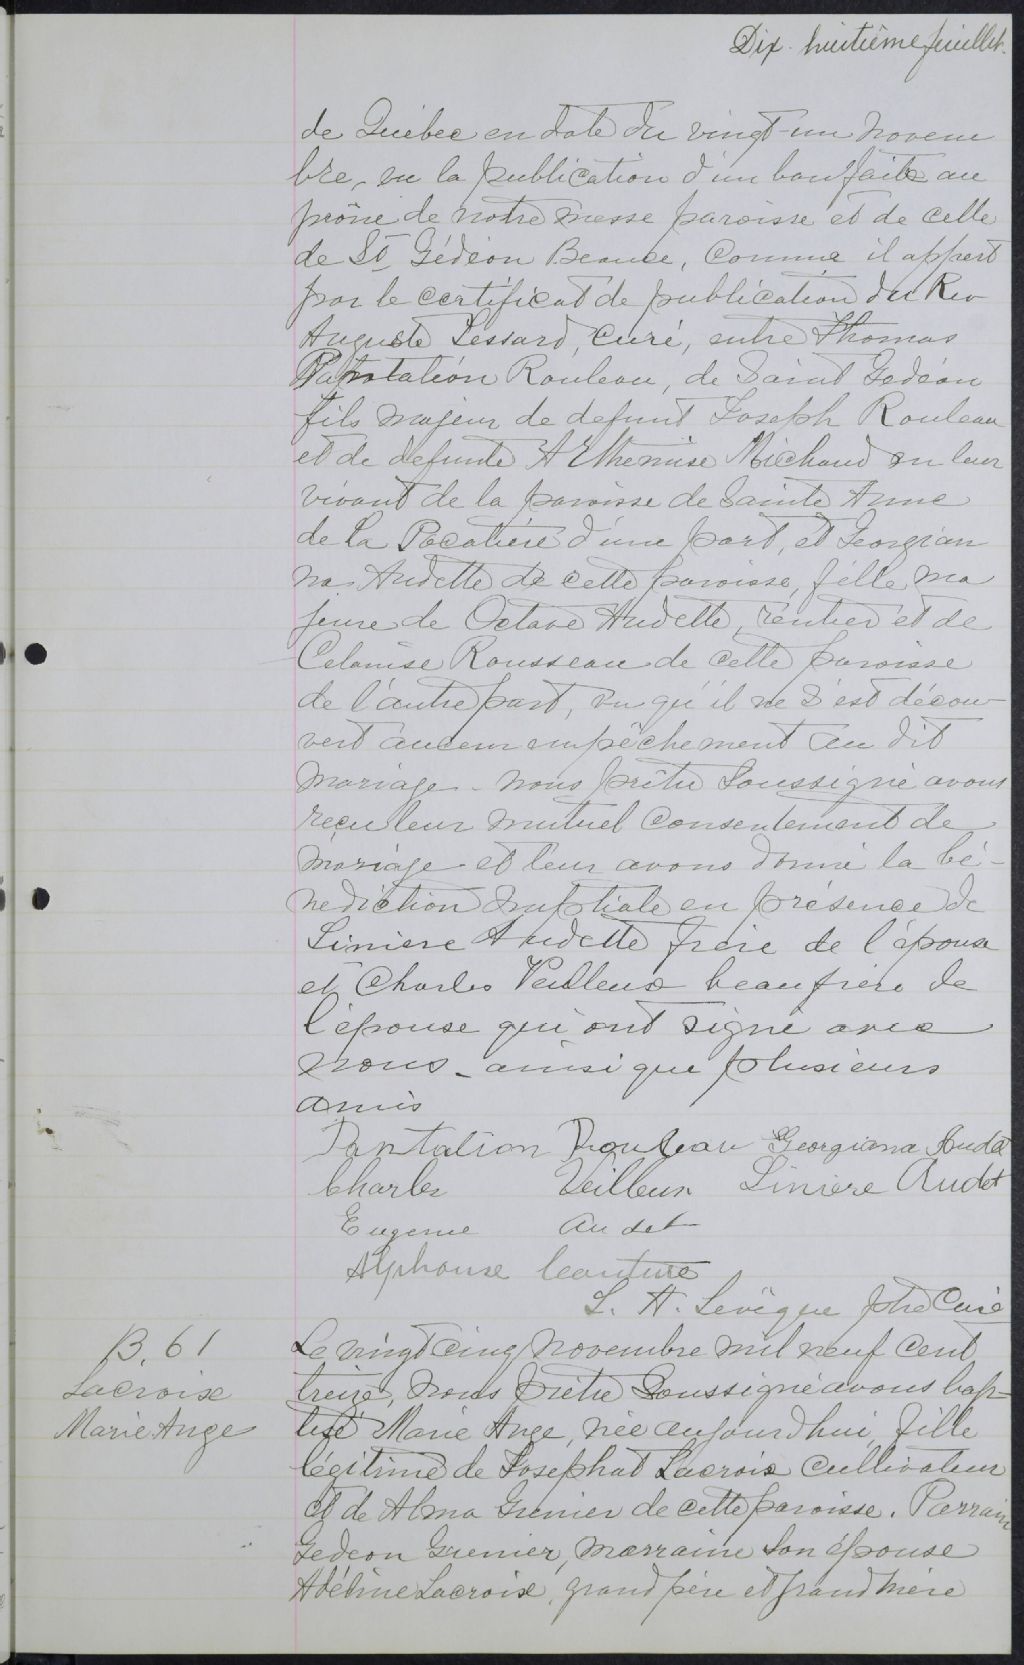 Dix-huitième feuillet.
de Québec en date du vingt-un novem
bre, vu la publication d'un ban faite au
prône de notre messe paroisse et de celle
de St Gédéon Beauce, comme il appert
par le certificat de publication du Rev
Auguste Lessard, curé, entre Thomas
Pantaléon Rouleau, de Saint Gedéon
fils majeur de defunt Joseph Rouleau
et de defunte Arthemise Michaud en leur
vivant de la paroisse de Sainte Anne
de La Pocatière d'une part, et Georgian
na Audette de cette paroisse, fille ma
jeure de Octave Audette, rentier et de
Celanise Rousseau de cette paroisse
de l'autre part, vu qu'il ne s'est décou-
vert aucun empêchement au dit
mariage - nous prêtre soussigné avons
reçu leur mutuel consentement de
mariage et leur avons donné la bé-
nediction nuptiale en présence de
Liniere Audette frère de l'épouse
et Charles Veilleux beaufrère de
l'épouse qui ont signé avec
nous - ainsi que plusieurs
amis
Pantalion Rouleau Georgiana Audet
Charles Veilleux Liniere Audet
Eugenie Audet
Alphonse Couture
L. A. Levêque ptre Curé
B. 61
Lacroix
Marie Ange
Le vingt cinq novembre mil neuf cent
treize, nous prêtre soussigné avons bap-
tisé Marie Ange, née aujourd'hui, fille
légitime de Josephat Lacroix cultivateur
et de Alma Grenier de cette paroisse. Parrain
Gedeon Grenier, marraine son épouse
Adéline Lacroix, grand père et grand mère